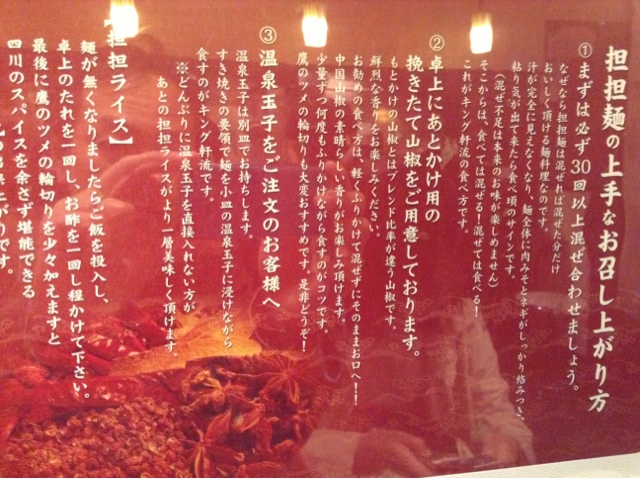 担担麺の上手なお召し上がり方
①まずは必ず30回以上混ぜ合わせましょう。
なぜなら担担麺は混ぜれば混ぜた分だけ
おいしく頂ける麺料理なのです。
汁が完全に見えなくなり、麺全体に肉みそとネギがしっかり絡みつき、
粘り気が出て来たら食べ頃のサインです。
(混ぜ不足は本来のお味が楽しめません)
そこからは、食べては混ぜる!混ぜては食べる!
これがキング軒流の食べ方です。
②卓上にあとかけ用の
挽きたて山椒をご用意しております。
もとかけの山椒とはブレンド比率が違う山椒です。
鮮烈な香りをお楽しみください。
お勧めの食べ方は、軽くふりかけて混ぜずにそのままお口へ!!
中国山椒の素晴らしい香りがお楽しみ頂けます。
少量ずつ何度もふりかけながら食すのがコツです。
鷹のツメの輪切りも大変おすすめです。是非どうぞ!
③温泉玉子をご注文のお客様へ
温泉玉子は別皿でお持ちします。
すき焼きの要領で麺を小皿の温泉玉子に浸けながら
食すのがキング軒流です。
※どんぶりに温泉玉子を直接入れない方が
あとの担担ライスがより一層美味しく頂けます。
【担担ライス】
麺が無くなりましたらご飯を投入し、
卓上のたれを一回し、お酢を一回し程かけて下さい。
最後に鷹のツメの輪切りを少々加えますと
四川のスパイスを余さず堪能できる
上がりです。